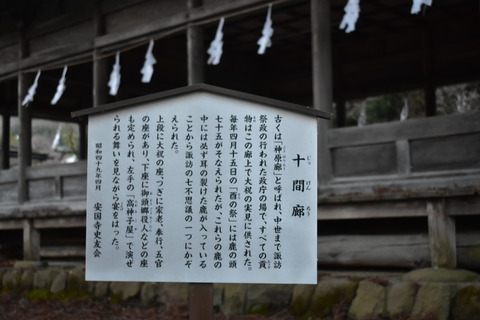 十間廊
じっ けん ろう
古くは「神原廊」と呼ばれ、中世まで諏訪
祭政の行われた政庁の場で、すべての貢
物はこの廊上で大祝の実見に供された。
毎年四月十五日の「酉の祭」には鹿の頭
七十五がそなえられたが、これらの鹿の
中には必ず耳の裂けた鹿が入っている
ことから諏訪の七不思議の一つにかぞ
えられた。
上段に大祝の座、つぎに家老、奉行、五官
の座があり、下座に御頭郷役人などの座
も定められ、左手の「高神子屋」で演ぜ
られる舞いを見ながら宴をはった。
昭和四十九年四月
安国寺史友会